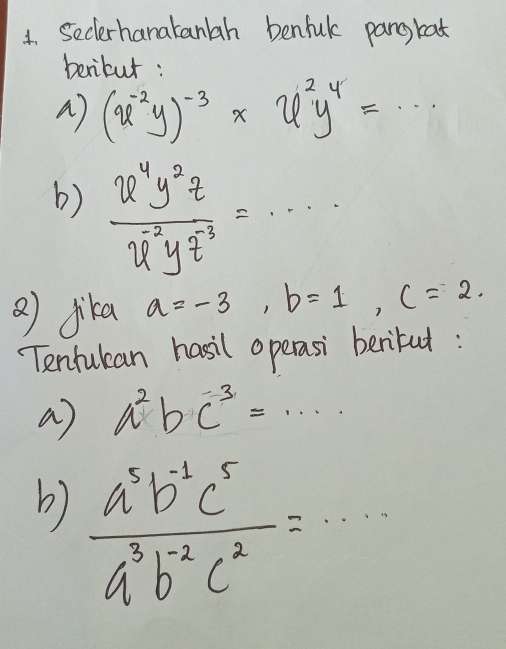 1. Sederhanakanlah bentuk pangkat
berikut :
a) (x⁻²y)⁻³ × x²y⁴ = ...
b) x⁴y²z / x⁻²yz⁻³ = .....
2) Jika a = -3 , b = 1 , c = 2.
Tentukan hasil operasi berikut :
a) a²bc⁻³ = ....
b) a⁵b⁻¹c⁵ / a³b⁻²c² = .....